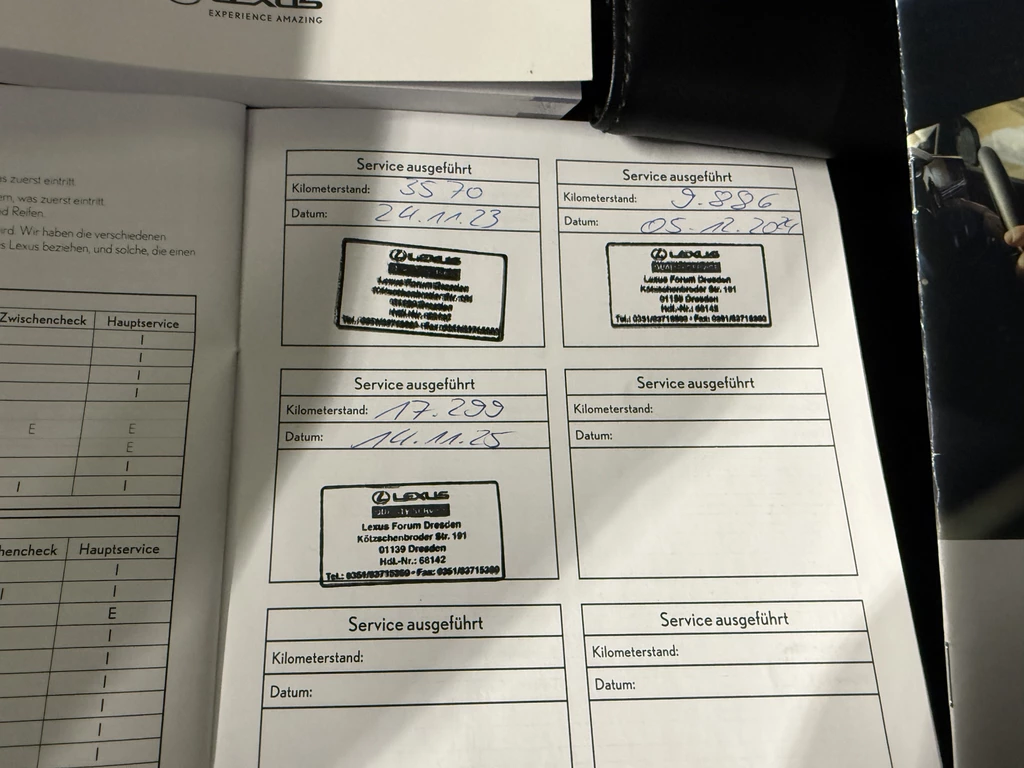 LEXUS
EXPERIENCE AMAZING
s zuerst eintritt.
rn, was zuerst eintritt.
d Reifen.
ird. Wir haben die verschiedenen
s Lexus beziehen, und solche, die einen
Zwischencheck Hauptservice
I
I
I
I
E E
E
I
I I
hencheck Hauptservice
I
I I
E
I
I
I
I
I
I
Service ausgeführt
Kilometerstand: 3570
Datum: 24.11.23
LEXUS
Lexus Forum Dresden
Kötzschenbroder Str. 191
Service ausgeführt
Kilometerstand: 9.886
Datum: 05.12.2024
LEXUS
Lexus Forum Dresden
Kötzschenbroder Str. 191
01139 Dresden
Hdl.-Nr.: 68142
Tel.: 0351/83715350 • Fax: 0351/83715390
Service ausgeführt
Kilometerstand: 17.299
Datum: 14.11.25
LEXUS
Lexus Forum Dresden
Kötzschenbroder Str. 191
01139 Dresden
Hdl.-Nr.: 68142
Tel.: 0351/83715350 • Fax: 0351/83715390
Service ausgeführt
Kilometerstand:
Datum:
Service ausgeführt
Kilometerstand:
Datum:
Service ausgeführt
Kilometerstand:
Datum: